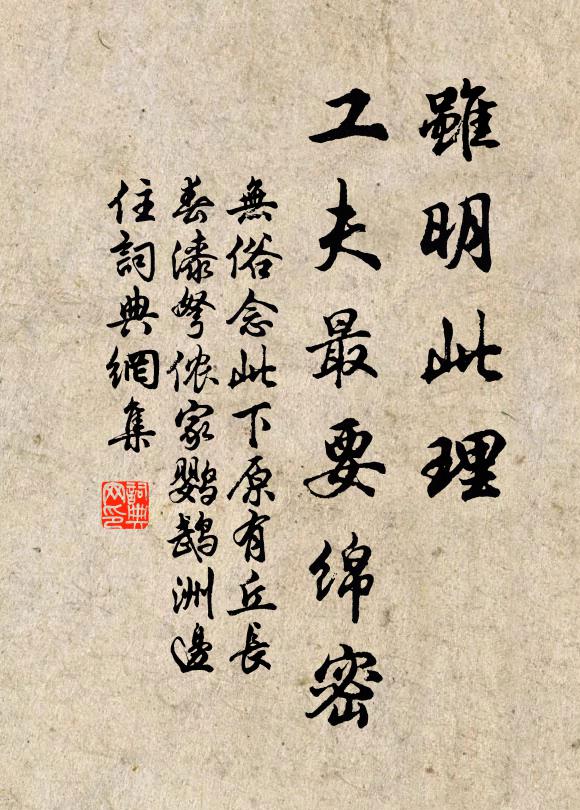 雖明此理
工夫最要綿密
無俗念此下原有丘長
春漆弩儂家鸚鵡洲邊
住詞典網集
詞典
网印